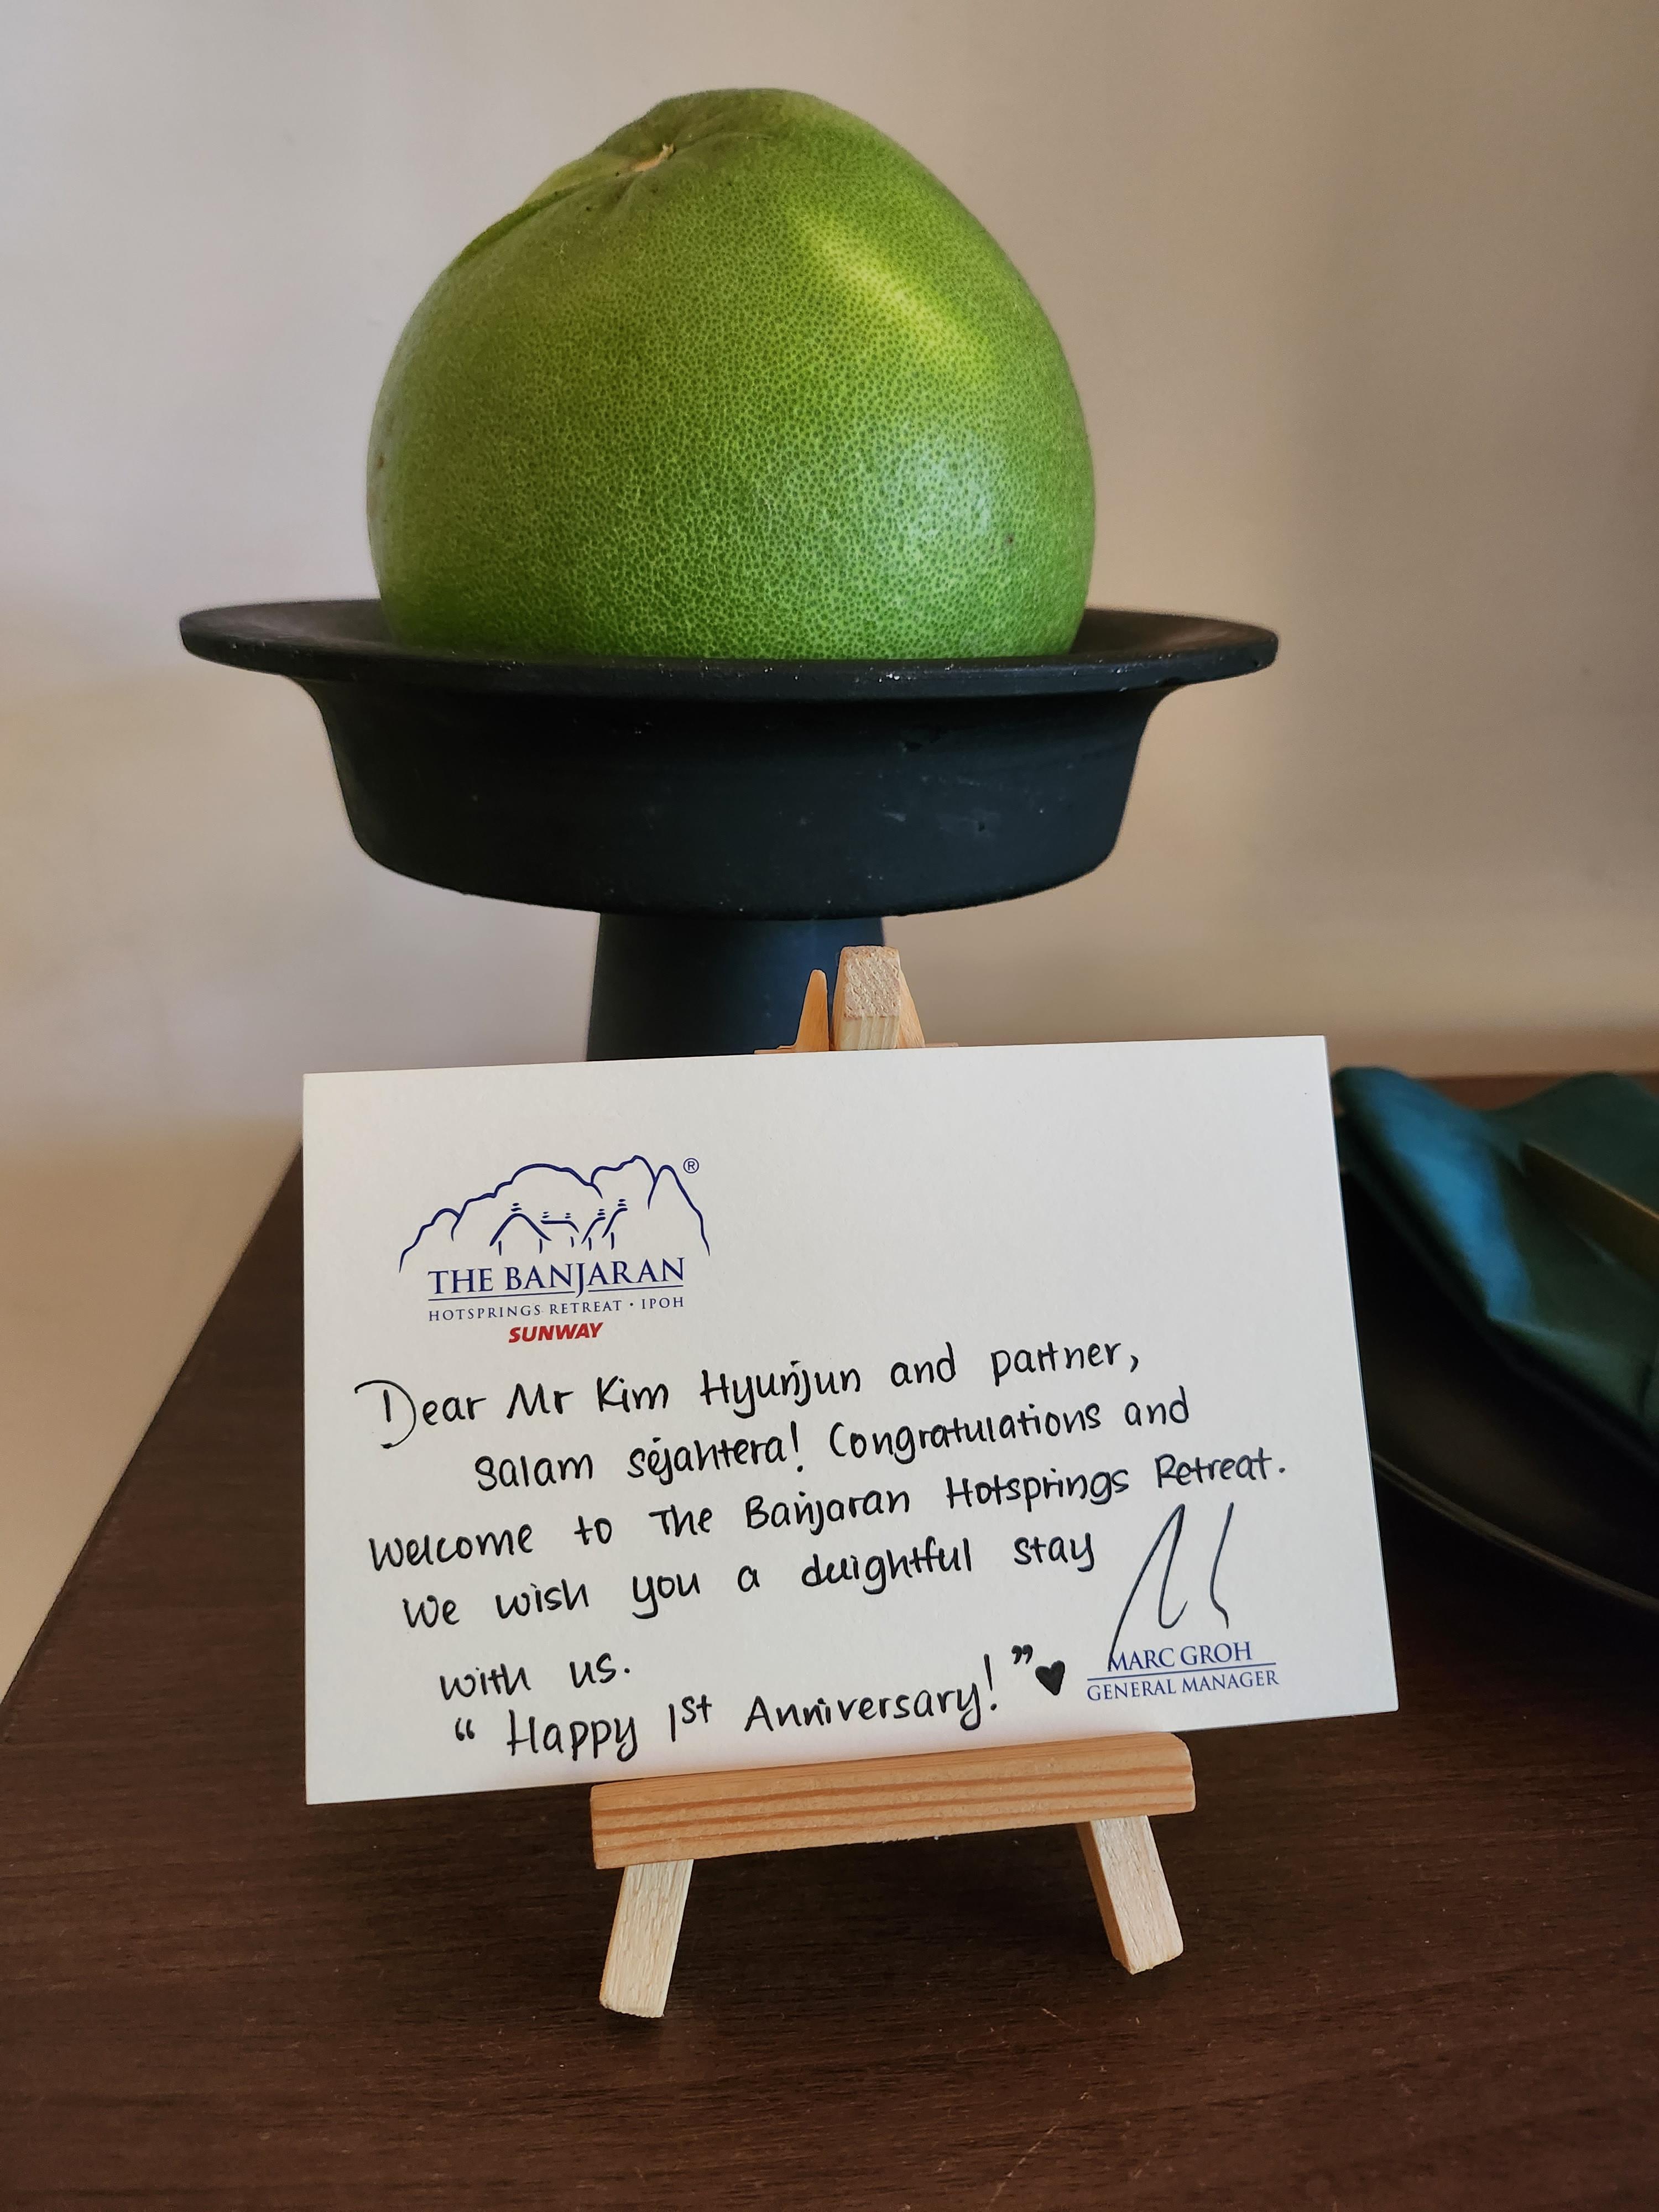 ®
THE BANJARAN
HOTSPRINGS RETREAT • IPOH
SUNWAY
Dear Mr Kim Hyunjun and partner,
Salam sejahtera! Congratulations and
Welcome to The Banjaran Hotsprings Retreat.
We wish you a delightful stay
with us.
“ Happy 1st Anniversary! ” ♥
MARC GROH
GENERAL MANAGER